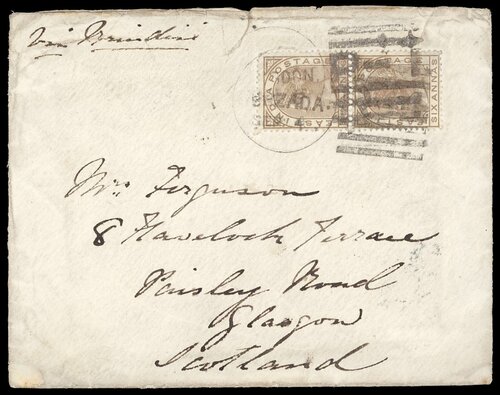 Via Brindisi
INDIA POSTAGE
EAST
SIX ANNAS
Mrs Ferguson
8 Havelock Terrace
Paisley Road
Glasgow
Scotland